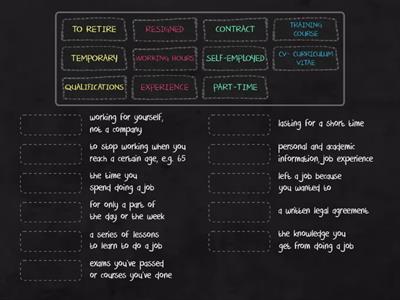 TO RETIRE
RESIGNED
CONTRACT
TRAINING
COURSE
TEMPORARY
WORKING HOURS
SELF-EMPLOYED
CV- CURRICULUM
VITAE
QUALIFICATIONS
EXPERIENCE
PART-TIME
working for yourself,
not a company
to stop working when you
reach a certain age, e.g. 65
the time you
spend doing a job
for only a part of
the day or the week
a series of lessons
to learn to do a job
exams you've passed
or courses you've done
lasting for a short time
personal and academic
information, job experience
left a job because
you wanted to
a written legal agreement
the knowledge you
get from doing a job